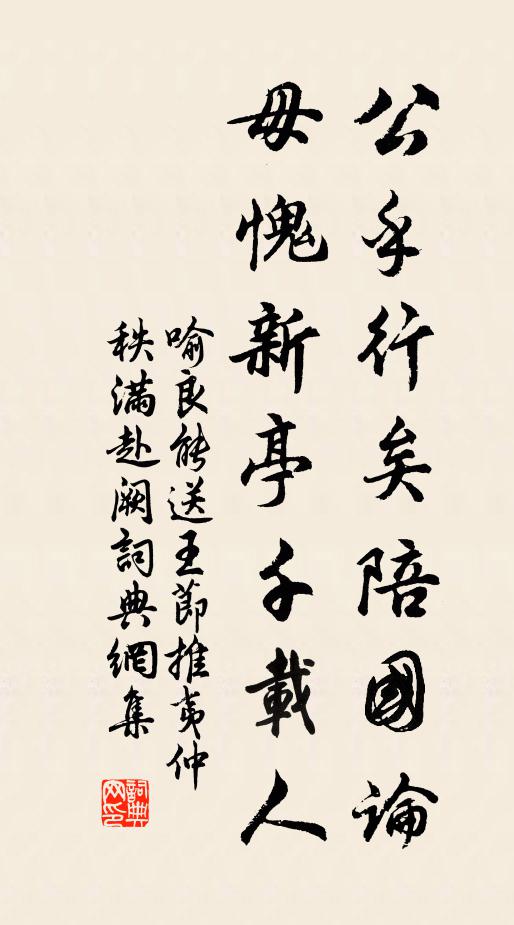 公乎行矣陪國論
毋愧新亭千載人
喻良能送王節推夷仲
秩滿赴闕詞典網集
詞典
网印